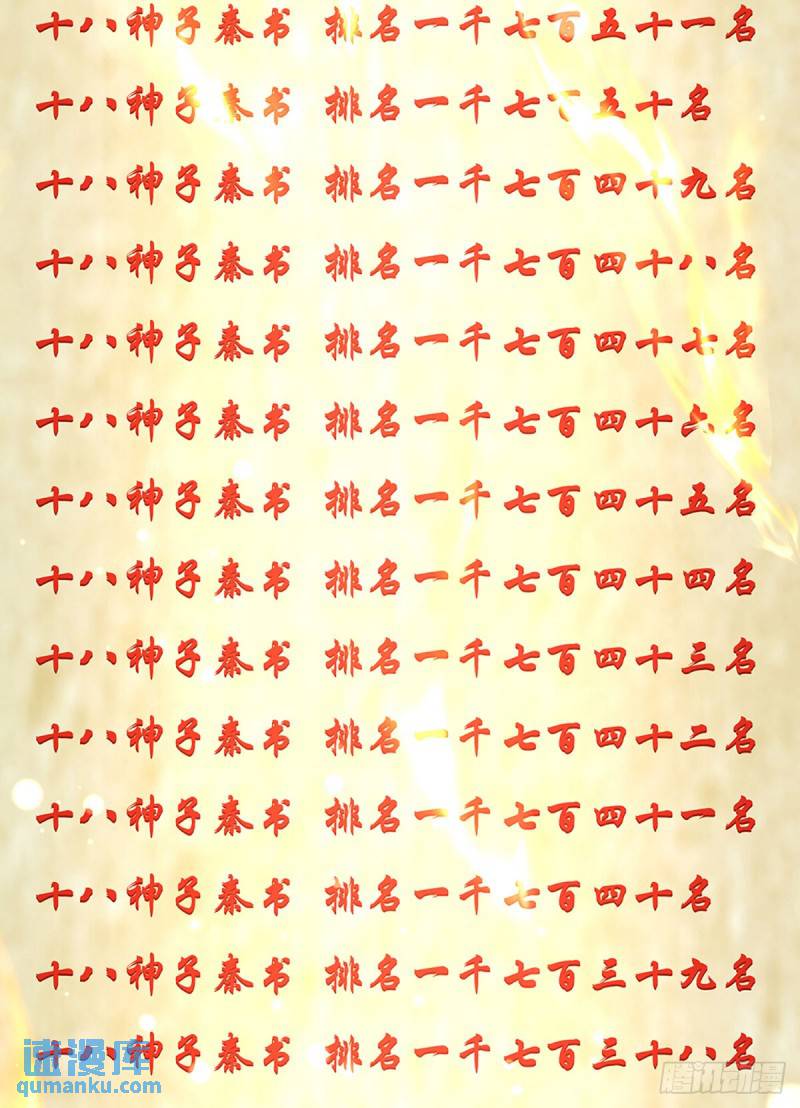 十八神子秦书 排名一千七百五十一名
十八神子秦书 排名一千七百五十名
十八神子秦书 排名一千七百四十九名
十八神子秦书 排名一千七百四十八名
十八神子秦书 排名一千七百四十七名
十八神子秦书 排名一千七百四十六名
十八神子秦书 排名一千七百四十五名
十八神子秦书 排名一千七百四十四名
十八神子秦书 排名一千七百四十三名
十八神子秦书 排名一千七百四十二名
十八神子秦书 排名一千七百四十一名
十八神子秦书 排名一千七百四十名
十八神子秦书 排名一千七百三十九名
十八神子秦书 排名一千七百三十八名
速漫库
qumanku.com
腾讯动漫